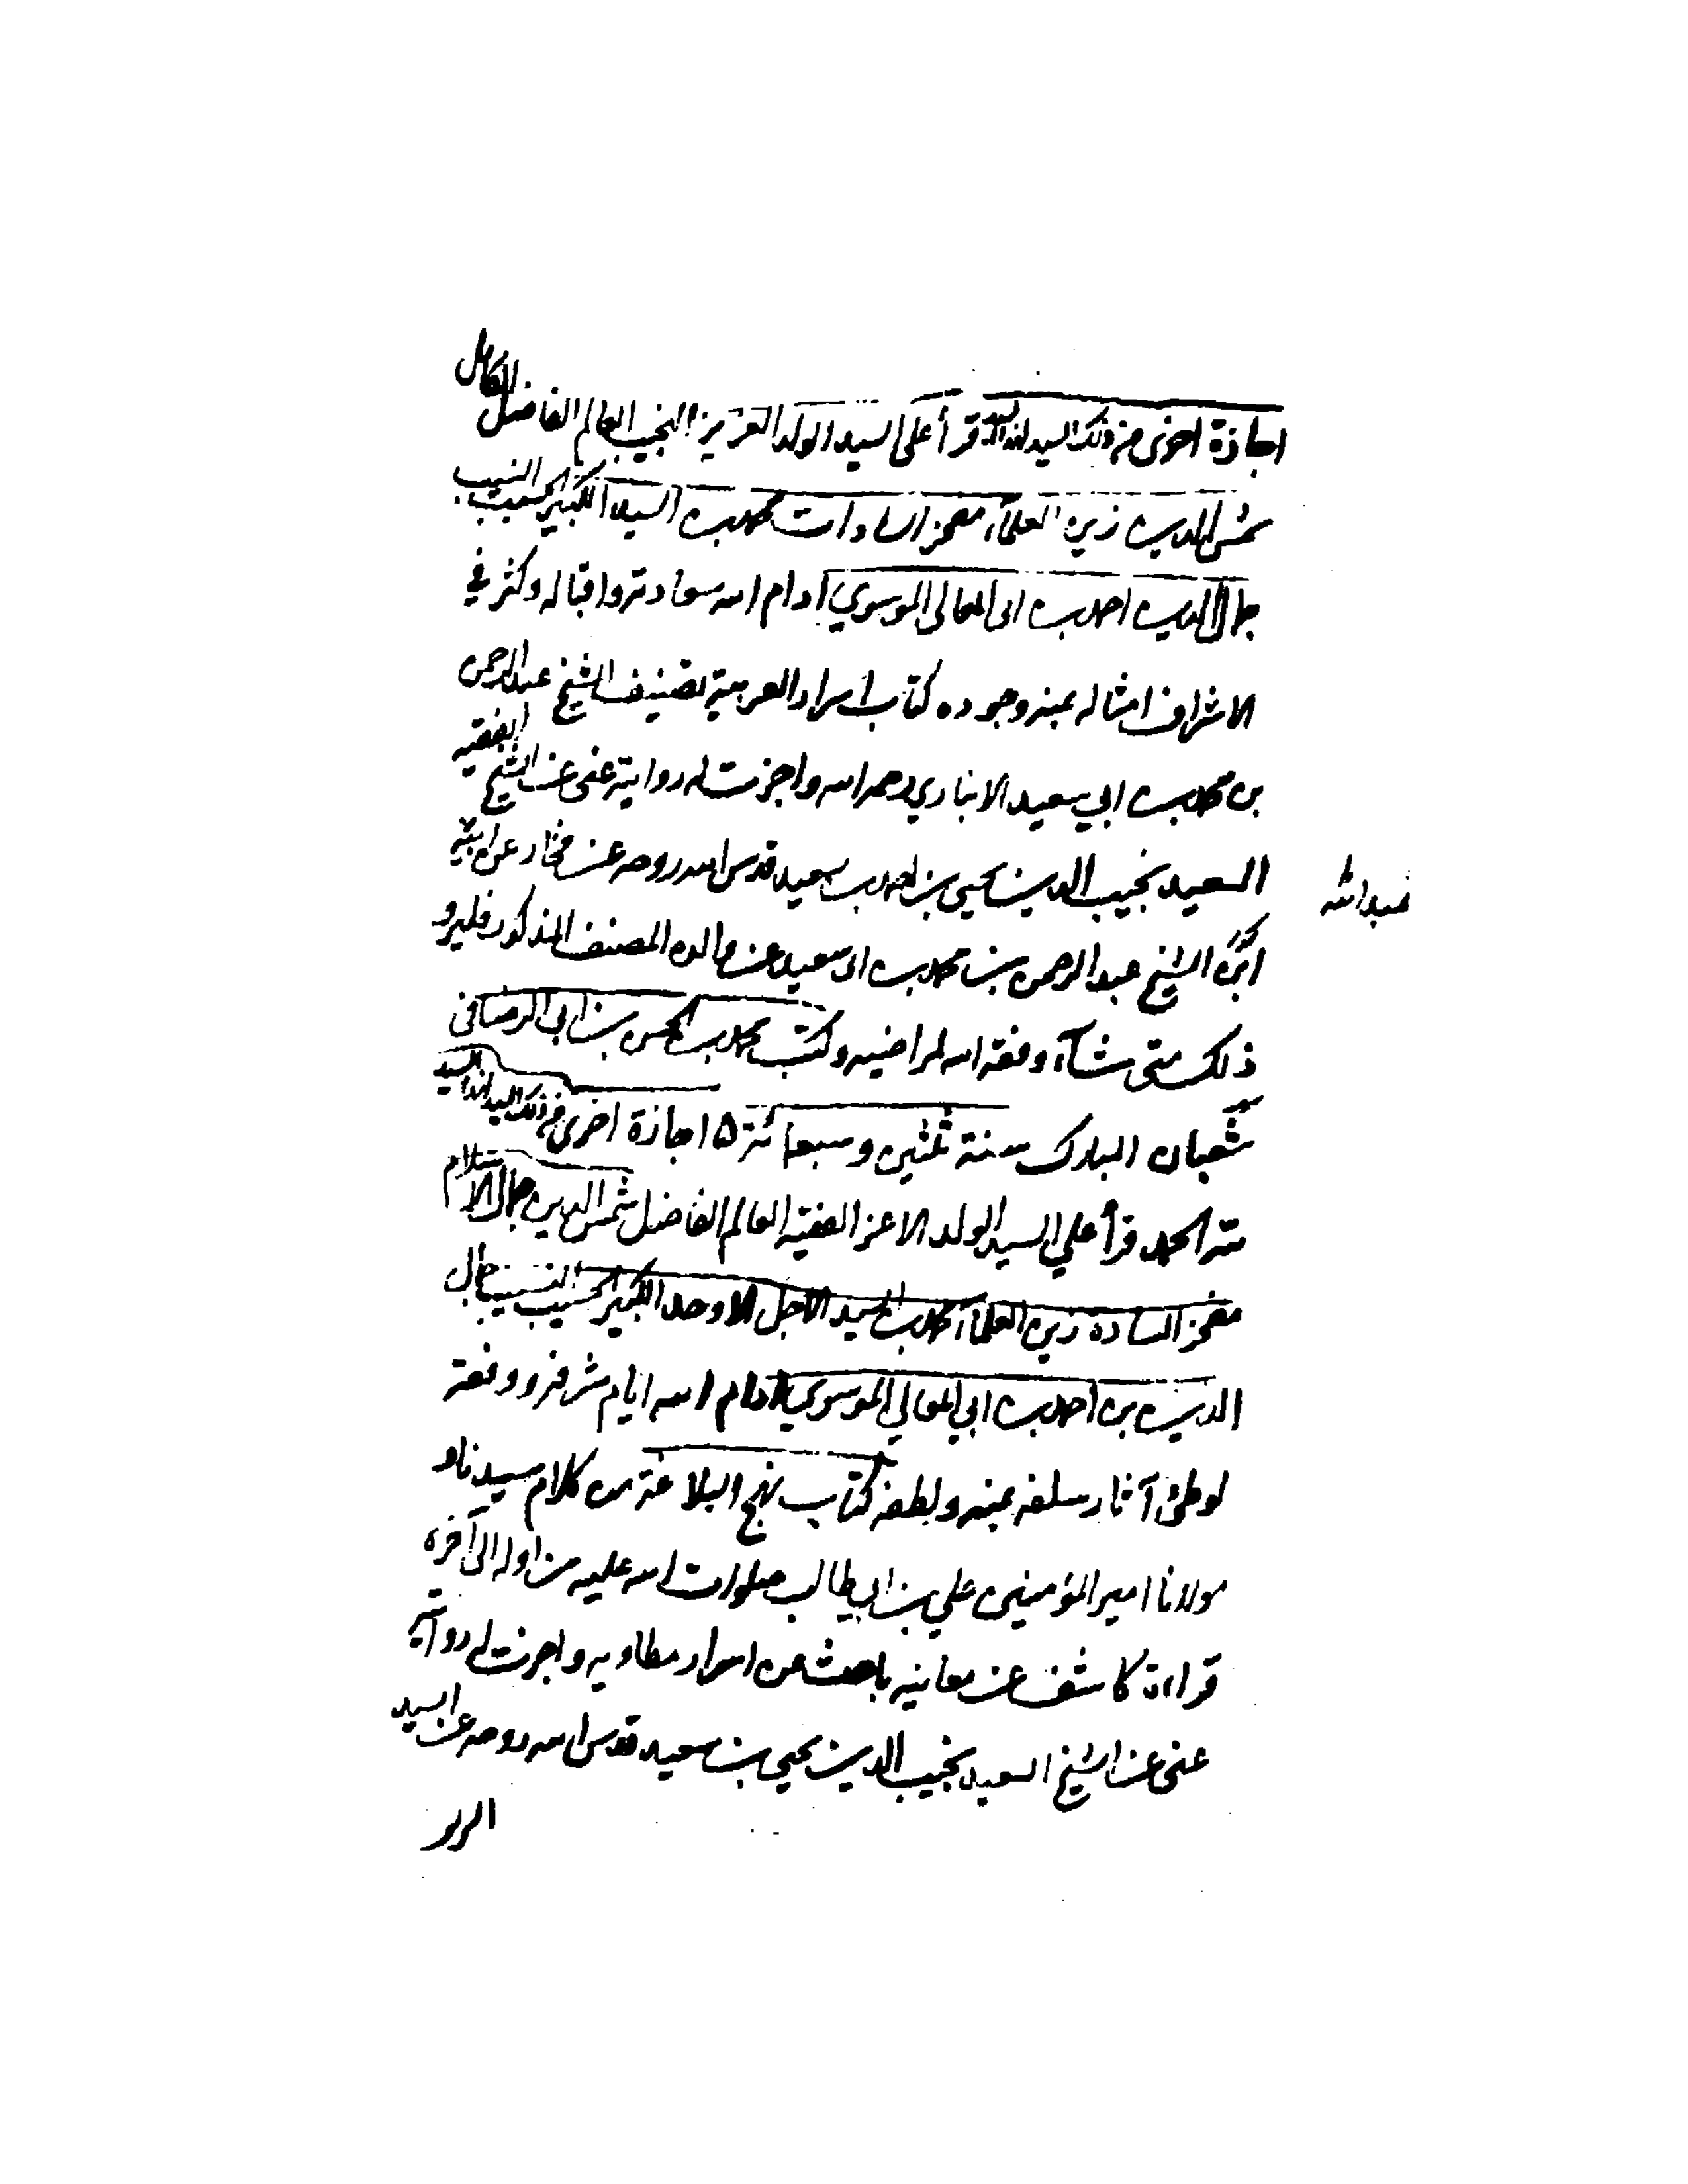 اجازة اخرى من ذلك السيد لهذا السيد قرأ على السيد الولد العزيز النجيب العالم الفاضل الكامل
شمس الدين زين العلماء مفخر السادات محمد بن السيد الكبير الحسيب النسيب
جمال الدين احمد بن ابى المعالى الموسوي ادام الله سعادته واقباله وكثر في
الاشراف امثاله بمنه وجوده كتاب اسرار العربية تصنيف الشيخ عبد الرحمن
بن محمد بن ابي سعيد الانباري رحمه الله واجزت له روايته عنى عن الشيخ الفقيه
السعيد نجيب الدين يحيى بن احمد بن سعيد قدس الله روحه عن فخار عن
عبد الله
الشيخ عبد الرحمن بن محمد بن ابى سعيد عن والده المصنف المذكور فليرو
ذلك متى شاء وفقه الله لمراضيه وكتب محمد بن الحسن بن ابى الرضا فى
شعبان المبارك سنة ثلثين وسبعمائة ه اجازة اخرى من ذلك السيد لهذا السيد
لله الحمد قرأ علي السيد الولد الاعز الفقيه العالم الفاضل شمس الدين جمال الاسلام
مفخر السادة زين العلماء محمد بن السيد الاجل الاوحد الكبير الحسيب النسيب جمال
الدين بن احمد بن ابي المعالي الموسوي ادام الله ايام شرفه ووفقه
لوطئ آثار سلفه بمنه ولطفه كتاب نهج البلاغة من كلام سيدنا و
مولانا امير المؤمنين علي بن ابيطالب صلوات الله عليه من اوله الى آخره
قراءة كاشف عن معانيه باحث عن اسرار مطاويه واجزت له روايته
عنى عن الشيخ السعيد نجيب الدين يحيى بن سعيد قدس الله روحه عن السيد